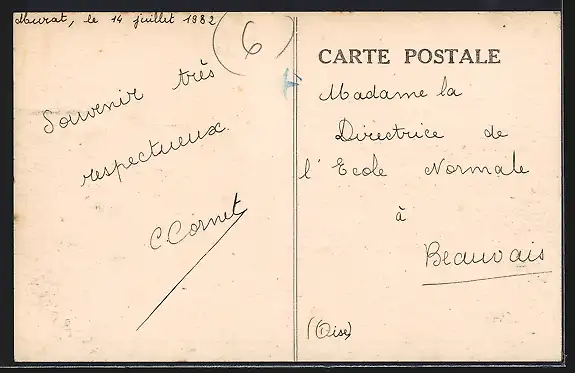 Murat, le 14 juillet 1932
6
Souvenir très
respectueux.
C Cornet
CARTE POSTALE
Madame la
Directrice de
l'Ecole Normale
à
Beauvais
(Oise)